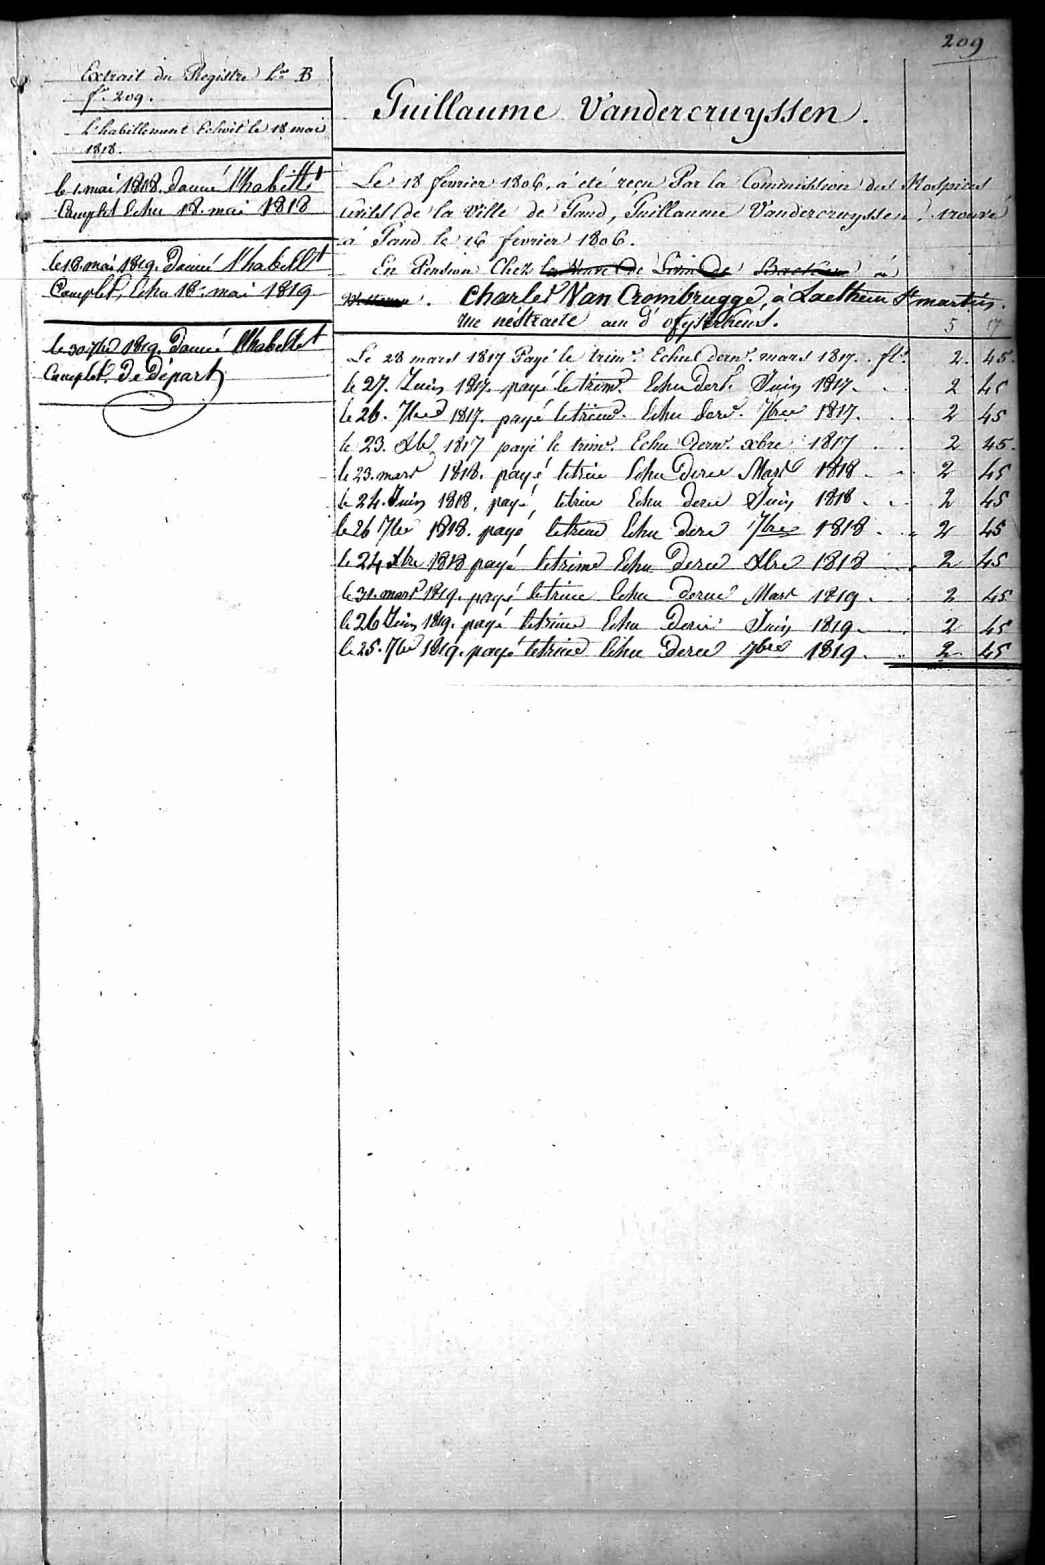 209
Extrait du Registre L.re B
f.o 209.
L'habillement Echoit le 18 mai
1818.
le 1. mai 1818. donné l'habillt
Complet Echu 18. mai 1818
le 18. mai 1819. donné l'habillt
Complet, Echu 18. mai 1819
le 30 7bre 1819. donné l'habillt
Complet. De Départ
Guillaume Vandercruyssen.
Le 18 fevrier 1806, à été reçu Par la Commission des Hospices
Civils de la Ville de Gand, Guillaume Vandercruyssen, trouvé
à Gand le 16 fevrier 1806.
En Pension Chez la Veuve de Livin De à
Charles Van Crombrugge, à Laethem St martin.
rue nestraete
5 17
Le 28 mars 1817 Payé le trim.e Echu dern.r mars 1817. fl. 2. 45.
le 27. Juin 1817. payé le trim.e Echu der.r Juin 1817. 2 45
le 26. 7bre 1817. payé le trim. Echu der.r 7bre 1817. 2 45
le 23. Xbre 1817 payé le trim.e Echu dern.r xbre 1817 2 45.
le 23. mars 1818. payé le trim Echu dere Mars 1818 2 45
le 24. Juin 1818. payé, le trim Echu dere Juin 1818. 2 45
le 26 7bre 1818. payé le trim Echu dere 7bre 1818. 2 45
le 24 Xbre 1818 payé le trim Echu Dere Xbre 1818 2 45
le 31. mars 1819. payé le trim Echu derne Mars 1819. 2 45
le 26 Juin 1819. payé le trim Echu dere Juin 1819. 2 45
le 25. 7bre 1819. payé le trim Echu Dere 7bre 1819. 2 45